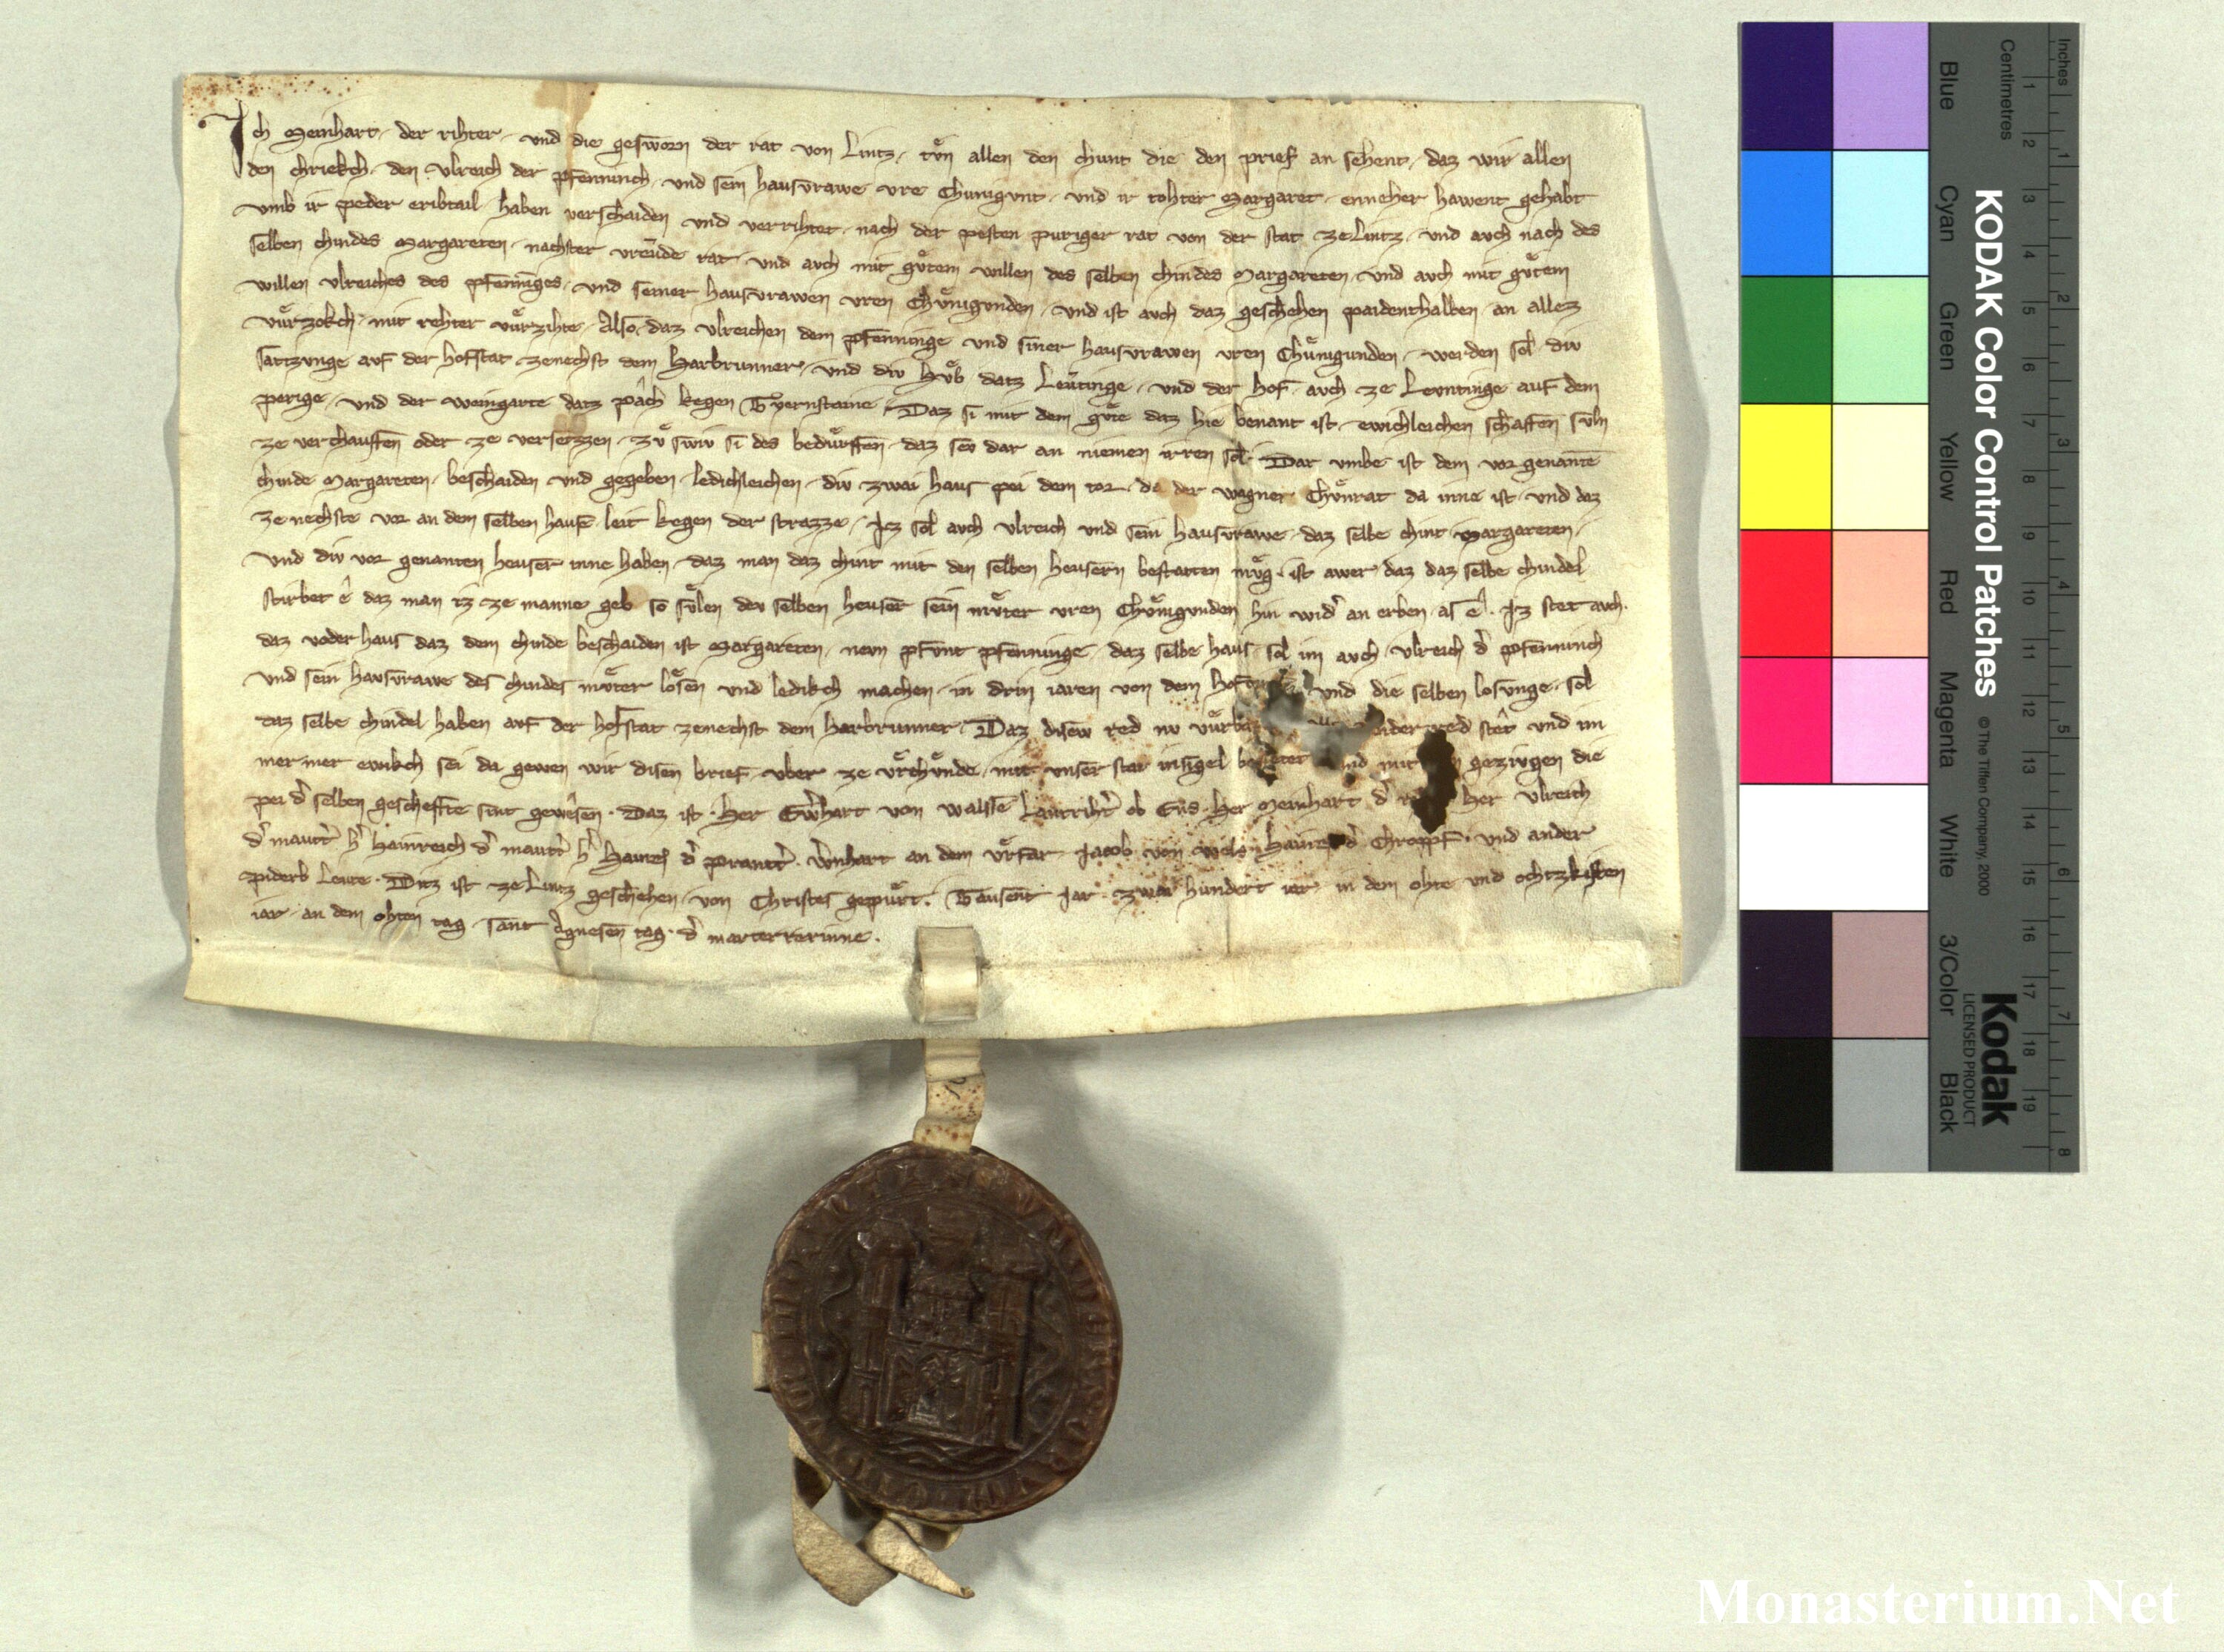 Ich Meinhart der rihter und die gesworn der rat von Lintz, tvͦn allen den chunt die den prief an sehent, daz wir allen
den chriekch den Ulreich der pfenninch und sein hausvrawe vre Chunigunt und ir tohter Margaret enneher hawent gehabt
umb ir peder eribtail haben verschaiden und verrihtet nach der pesten puriger rat von der stat ze Lintz und avch nach des
selben chindes Margareten nachster vreunde rat und avch mit gvͦtem willen des selben chindes Margareten und avch mit gvͦtem
willen Ulreiches des pfenninges und seiner hausvrawen vren Chvͤnigunden und ist avch daz geschehen paidenthalben an allez
vuͤrzokch mit rehter vuͤrzihte Also daz Ulreichen dem pfenninge und siner hausvrawen vren Chuͤnigunden werden sol div
sattzunge auf der hofstat zenechst dem Harbrunner und div Hvͦb datz Leutinge und der hof avch ze Levntinge auf dem
perige und der weingarte datz pach kegen Tyernstaine Daz si mit dem gvͦte daz hie benant ist ewichleichen schaffen svln
ze verchauffen oder ze versetzzen zvͦ swiv si des beduͤrffen daz sev dar an niemen irren sol Dar umbe ist dem vor genante
chinde Margareten beschaiden und gegeben ledichleichen div zwai haus pei dem tor da der wagner Chvͦnrat da inne ist und daz
ze nechste vor an dem selben hause leit kegen der strazze Iz sol avch Ulreich und sein hausvrawe daz selbe chint Margareten
und div vor genanten heuser inne haben daz man daz chint mit den selben heusern bestatten mvͤg ist awer daz daz selbe chindel
stirbet ê daz man iz ze manne geb so svͤlen dev selben heuser sein mvͦter vren Chvͤnigunden hin wider an erben als ê. Iz stet avch
daz voder haus daz dem chinde beschaiden ist Margareten nevn pfunt pfenninge daz selbe haus sol im avch Ulreich der pfenninch
und sein hausvrawe des chindes mvͦter loͤsen und ledikch machen in drin iaren von dem und die selben losunge sol
daz selbe chindel haben auf der hofstat zenechst dem Harbrunner Daz disew red nv stêt und im
mermer ewikch sei da gewen wir disen brief uber ze vrchvͤnde mit unser stat insigel und mit gezivgen die
pei der selben gescheffte sint gewesen. Daz ist. Her Ewerhart von Walsse Lantrihter ob Ens Her Meinhart der Her Ulreich
der mautter her Hainreich der mautter her Haines der prantter. Wernhart an dem vrfar Jacob von Wels Haines der Chropf. und ander
piderb Leute. Ditz ist ze Lintz geschehen von Christes gepuͤrt. Tausent Jar zwai hundert iar in dem ohte und ohtzkisten
iar an dem ohten tag sant Agnesen tag der marterrerinne.
KODAK Color Control Patches © The Tiffen Company, 2000
Kodak
LICENSED PRODUCT
Inches
Centimetres
1 2 3 4 5 6 7 8 9 10 11 12 13 14 15 16 17 18 19
1 2 3 4 5 6 7 8
Blue Cyan Green Yellow Red Magenta White 3/Color Black
Monasterium.Net